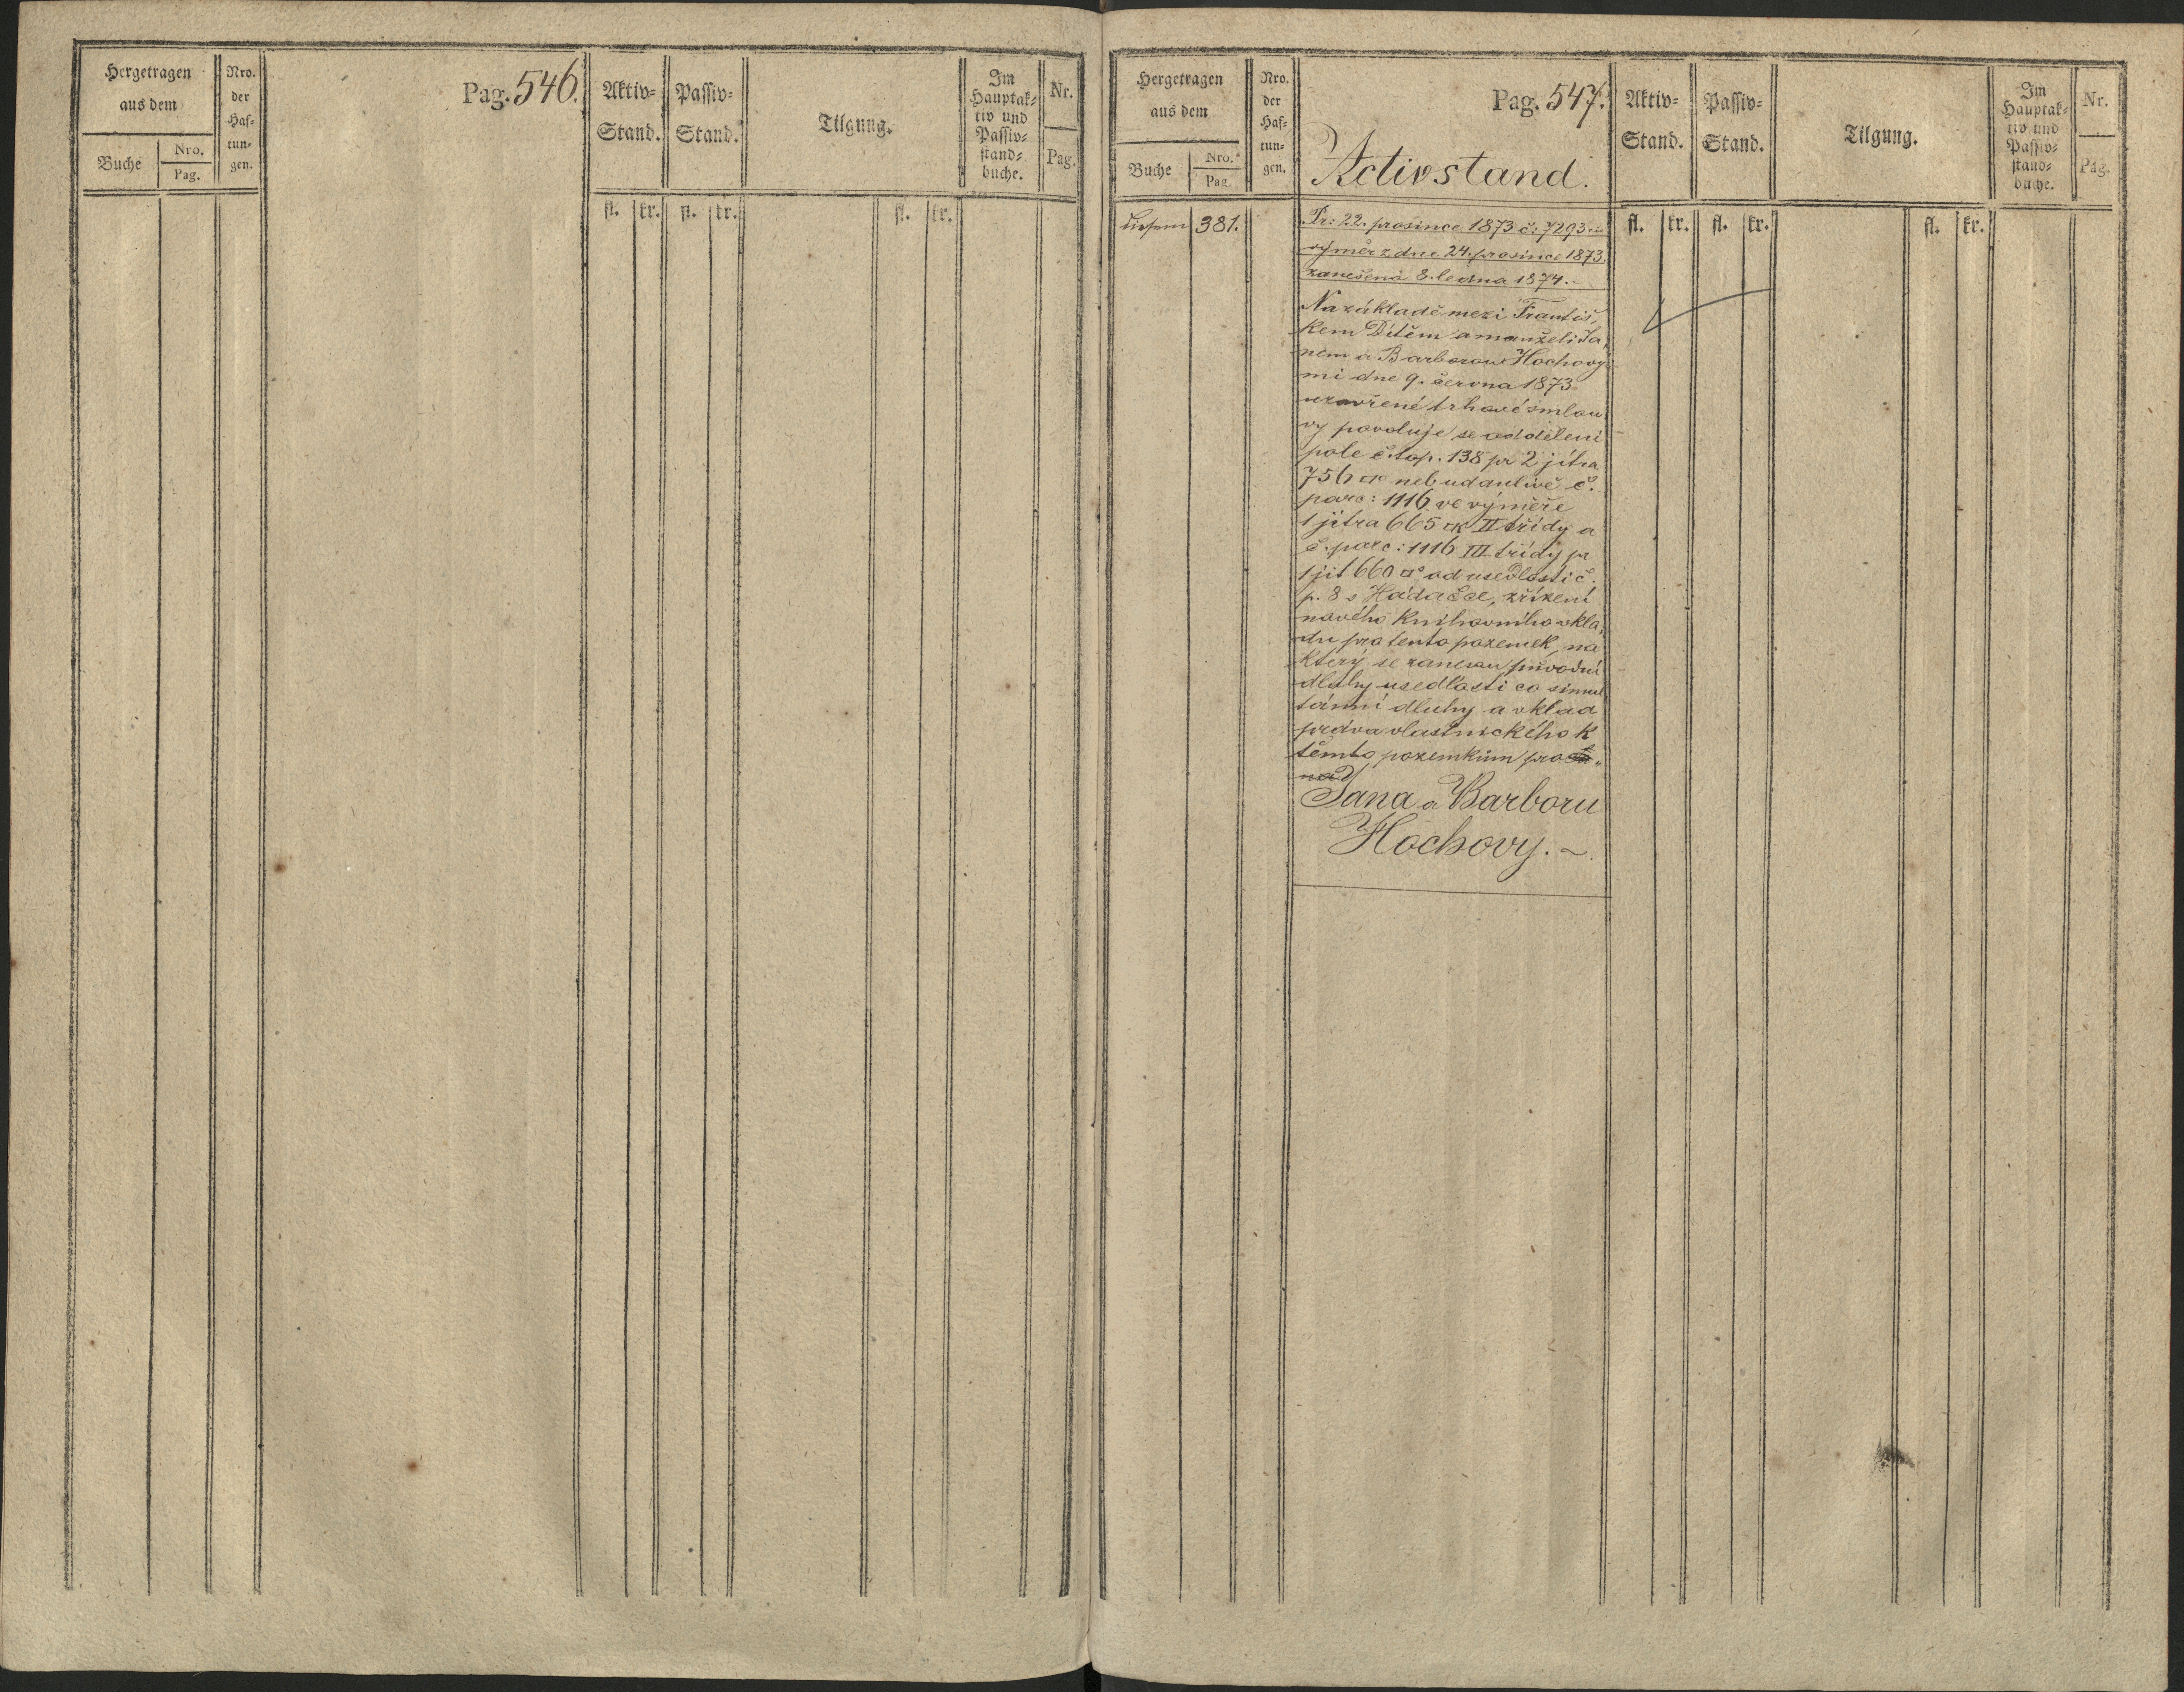 Hergetragen
aus dem
Buche
Nro.
Pag.
Nro.
der
Haf=
tun=
gen.
Pag. 546.
Aktiv=
Stand.
Passiv=
Stand.
Tilgung.
Im
Hauptak=
tiv und
Passiv=
stand=
buche.
Nr.
Pag.
fl. kr. fl. kr. fl. kr.
Hergetragen
aus dem
Buche
Nro.
Pag.
Nro.
der
Haf=
tun=
gen.
Pag. 547.
Activstand.
Aktiv=
Stand.
Passiv=
Stand.
Tilgung.
Im
Hauptak=
tiv und
Passiv=
stand=
buche.
Nr.
Pag.
fl. kr. fl. kr. fl. kr.
diesem 381.
Pr: 22. prosince 1873 č: 7293
výměr z dne 24. prosince 1873.
zanešená 8. ledna 1874.
Na základě mezi Františ„
kem Dítěm a manželi Ja„
nem a Barborou Hochový
mi dne 9. června 1873
uzavřené trhové smlou
vy povoluje se oddělení
pole č. top. 138 pr 2 jitra
756 □° neb udanlivě č.
parc: 1116 ve výměře
1 jitra 665 □° II třídy a
č. parc: 1116 III třídy pr
1 jit 660 □° od usedlosti č.
p. 8 s Hádačce, zřízení
nového knihovního vkla„
du pro tento pozemek, na
který se zanesou původní
dluhy usedlosti co simul
tánní dluhy a vklad
práva vlastnického k
těmto pozemkům pro
Jana a Barboru
Hochovy.